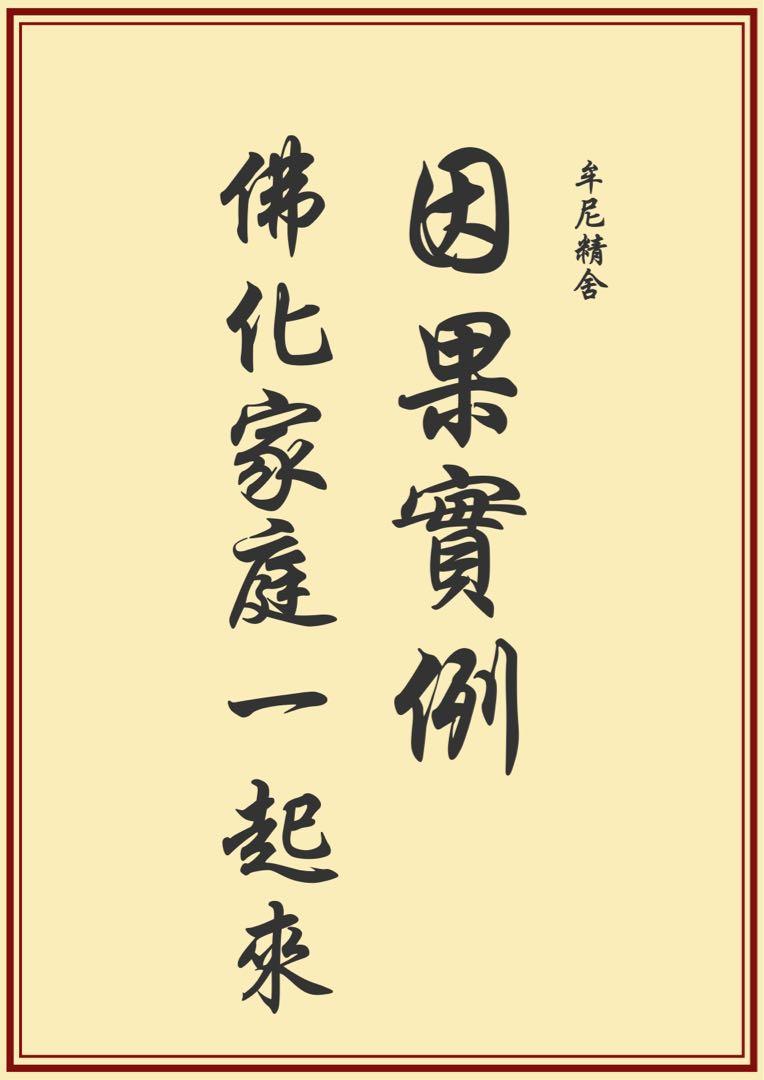 牟尼精舍
因果實例
佛化家庭一起來